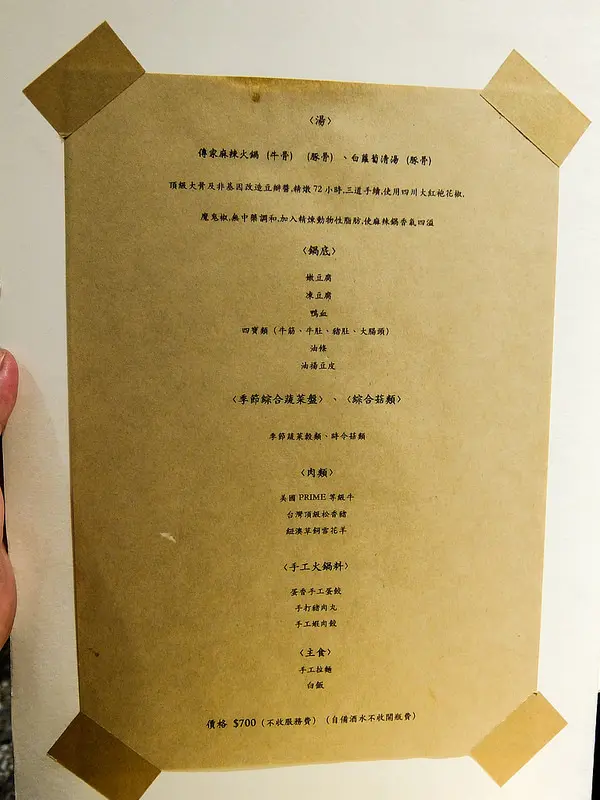 〈湯〉
傳家麻辣火鍋 (牛骨) (豚骨) 、白蘿蔔清湯 (豚骨)
頂級大骨及非基因改造豆瓣醬,精燉 72 小時,三道手續,使用四川大紅袍花椒,
魔鬼椒,無中藥調和,加入精煉動物性脂肪,使麻辣鍋香氣四溢
〈鍋底〉
嫩豆腐
凍豆腐
鴨血
四寶類 (牛筋、牛肚、豬肚、大腸頭)
油條
油揚豆皮
〈季節綜合蔬菜盤〉 、 〈綜合菇類〉
季節蔬菜穀類、時令菇類
〈肉類〉
美國 PRIME 等級牛
台灣頂級松香豬
紐澳草飼雪花羊
〈手工火鍋料〉
蛋香手工蛋餃
手打豬肉丸
手工蝦肉餃
〈主食〉
手工拉麵
白飯
價格 $700 (不收服務費) (自備酒水不收開瓶費)